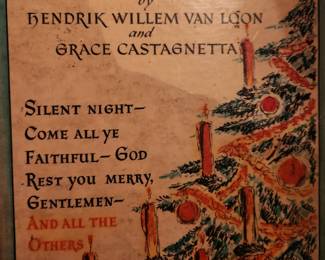 by
HENDRIK WILLEM VAN LOON
and
GRACE CASTAGNETTA
SILENT NIGHT—
COME ALL YE
FAITHFUL—GOD
REST YOU MERRY,
GENTLEMEN—
AND ALL THE
OTHERS